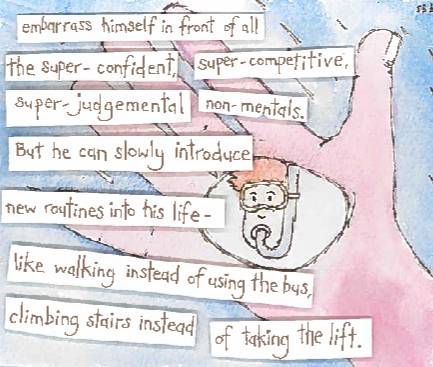 embarrass himself in front of all
the super-confident, super-competitive,
super-judgemental non-mentals.
But he can slowly introduce
new routines into his life-
like walking instead of using the bus,
climbing stairs instead of taking the lift.